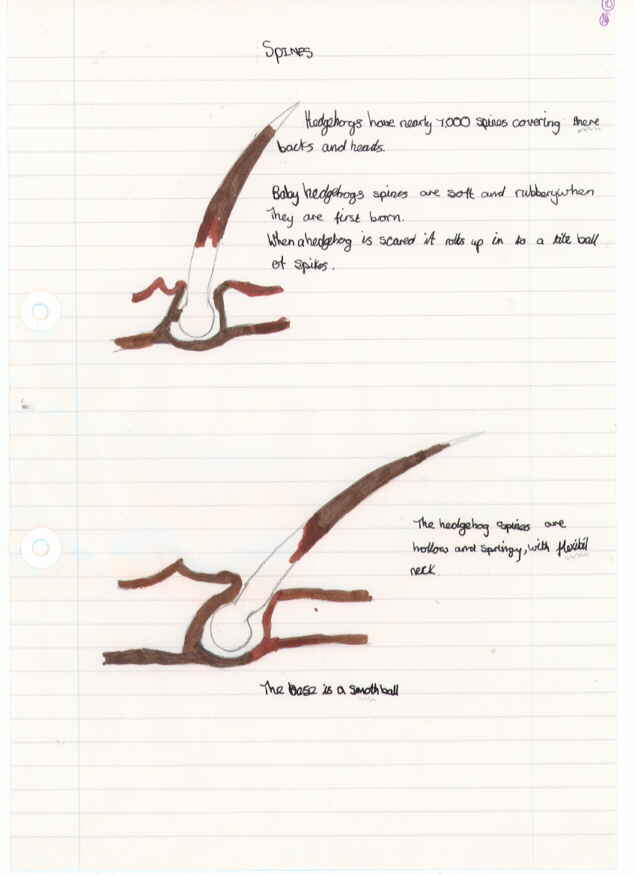 SPINES
Hedgehogs have nearly 7,000 spines covering there
backs and heads.
Baby hedgehogs spines are soft and rubbery when
They are first born.
When a hedgehog is scared it rolls up in to a tite ball
of spikes.
The hedgehog spines are
hollow and springy, with flexibil
neck.
The base is a smoth ball